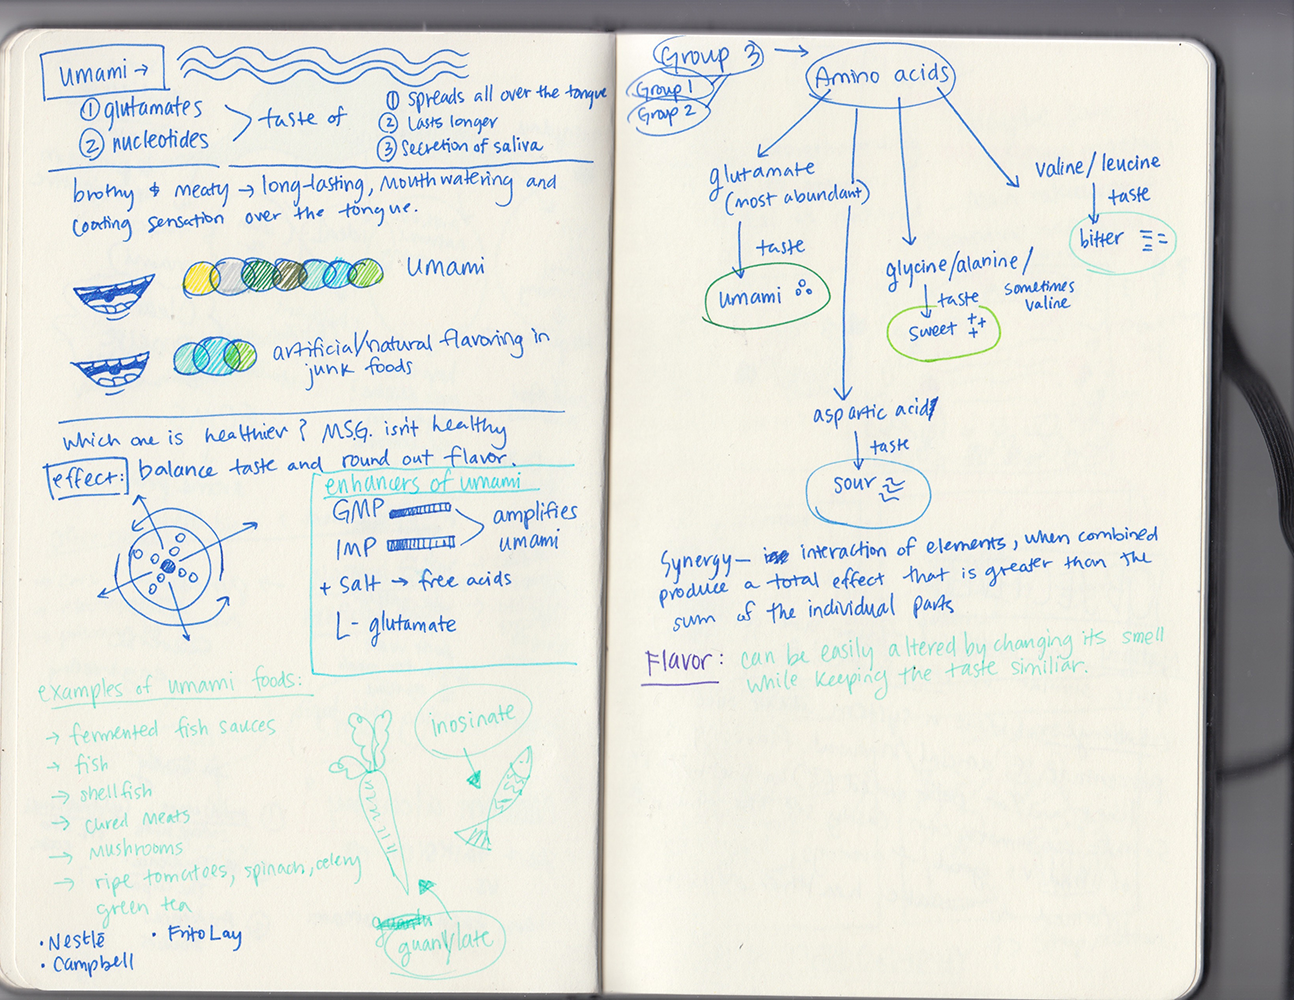 umami →
① glutamates
② nucleotides
taste of
① spreads all over the tongue
② Lasts longer
③ secretion of saliva
brothy & meaty → long-lasting, mouthwatering and
coating sensation over the tongue.
Umami
artificial/natural flavoring in
junk foods
which one is healthier? M.S.G. isn't healthy
effect: balance taste and round out flavor.
enhancers of umami
GMP
IMP
amplifies
umami
+ salt → free acids
L- glutamate
examples of umami foods:
→ fermented fish sauces
→ fish
→ shellfish
→ cured meats
→ mushrooms
→ ripe tomatoes, spinach, celery
green tea
• Nestlē
• FritoLay
• Campbell
inosinate
guanylate
Group 3 →
Group 1
Group 2
Amino acids
glutamate
(most abundant)
taste
umami
valine/leucine
taste
bitter
glycine/alanine/
sometimes
valine
taste
sweet
aspartic acid
taste
sour
Synergy – interaction of elements, when combined
produce a total effect that is greater than the
sum of the individual parts
Flavor: can be easily altered by changing its smell
while keeping the taste similiar.